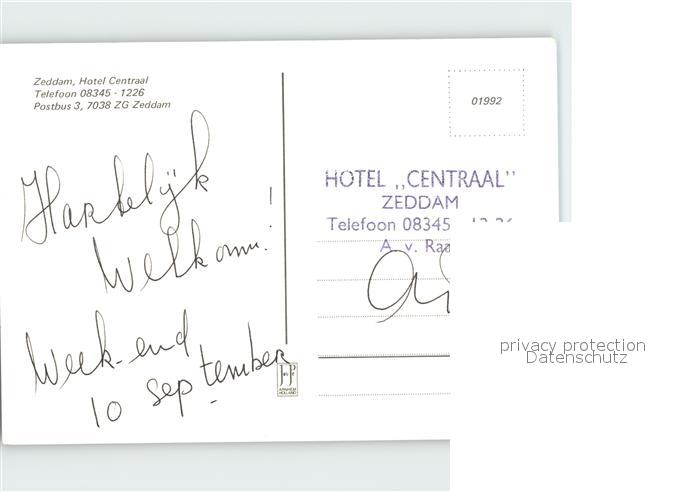 Zeddam, Hotel Centraal
Telefoon 08345 - 1226
Postbus 3, 7038 ZG Zeddam
Hartelijk
Welkom!
Week-end
10 september
01992
HOTEL „CENTRAAL”
ZEDDAM
Telefoon 08345
A. v.
ARNHEM
HOLLAND
privacy protection
Datenschutz